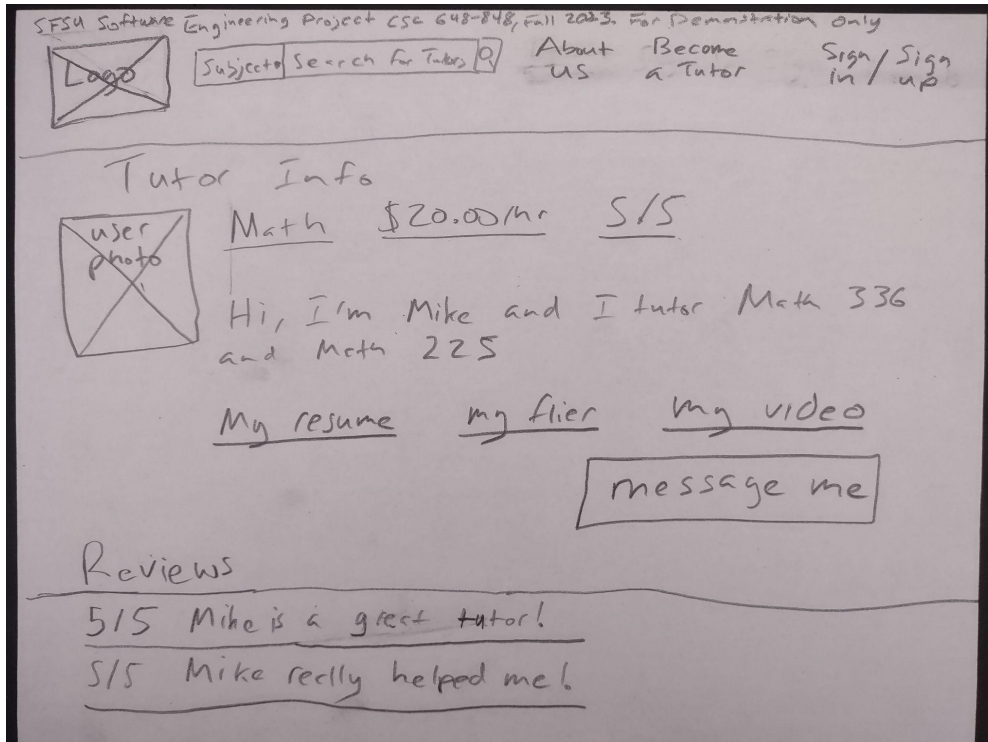 SFSU Software Engineering Project CSC 648-848, Fall 2023. For Demonstration Only
Logo
Subject Search For Tutors
About us
Become a Tutor
Sign in / Sign up
Tutor Info
user photo
Math $20.00/hr 5/5
Hi, I'm Mike and I tutor Math 336
and Math 225
My resume my flier my video
message me
Reviews
5/5 Mike is a great tutor!
5/5 Mike really helped me!